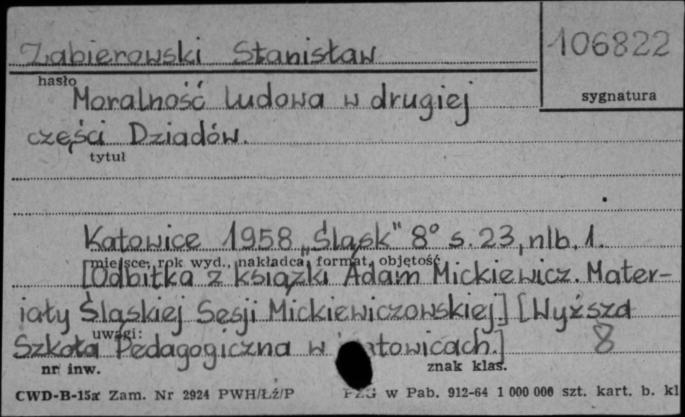 Zabierowski Stanisław
106822
hasło
sygnatura
Moralność ludowa w drugiej
części Dziadów.
tytuł
Katowice 1958 „Śląsk" 8° s. 23, nlb. 1.
miejsce, rok wyd., nakładca, format, objętość
[Odbitka z książki Adam Mickiewicz. Mater-
iały Śląskiej Sesji Mickiewiczowskiej.] [Wyższa
uwagi:
Szkoła Pedagogiczna w atowicach.] 8
nr inw. znak klas.
CWD-B-15a Zam. Nr 2924 PWH/Łź/P w Pab. 912-64 1 000 000 szt. kart. b. kl